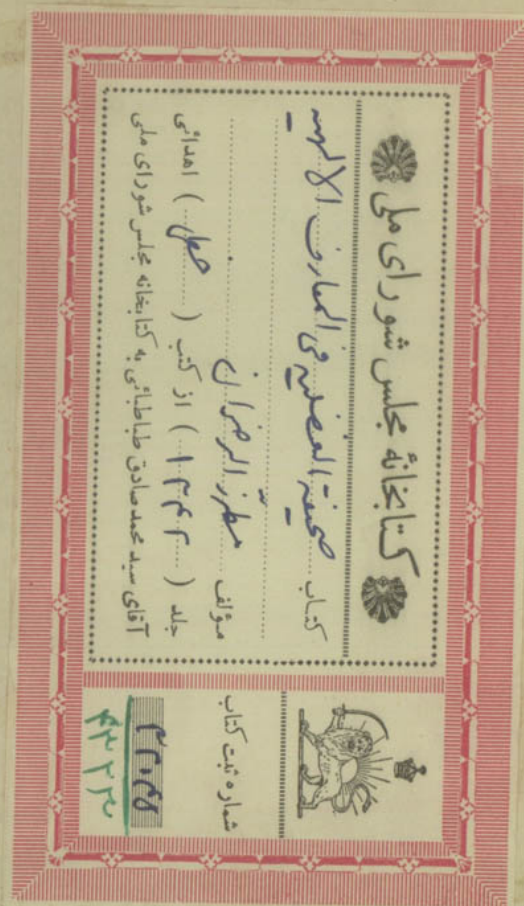 کتابخانهٔ مجلس شورای ملی
کتاب صحیفة الفضلیه فی المعارف الالهیه
مؤلف
جلد (۱۳۴۲) از کتب (خطی) اهدائی
آقای سید محمد صادق طباطبائی به کتابخانه مجلس شورای ملی
شماره ثبت کتاب